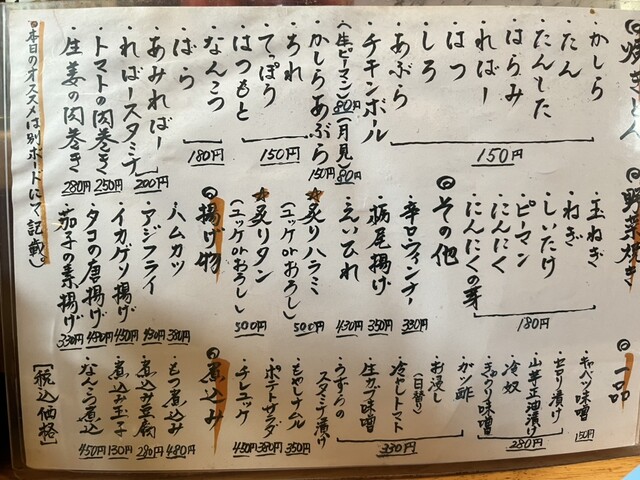 ◎焼きとん
・かしら
・たん
・たんした
・はらみ
・ればー
・はつ
・しろ
・あぶら
150円
・チチンボール
(生ピーマン)80円(月見)80円
・かしらあぶら
150円
・ちれ
・てっぽう
・はつもと
150円
・なんこつ
180円
・はら
・あみればー
・ればースタミナ
200円
・トマトの肉巻き
250円
・生姜の肉巻き
280円
◎本日のオススメは別ボードにて記載。
◎野菜焼き
・玉ねぎ
・ねぎ
・しいたけ
・ピーマン
・にんにく
・にんにくの芽
180円
◎その他
・辛口ウィンナー
330円
・栃尾揚げ
350円
・えいひれ
430円
★炙りハラミ
(ユッケorおろし)
500円
★炙りタン
(ユッケorおろし)
500円
◎揚げ物
・ハムカツ
380円
・アジフライ
430円
・イカゲソ揚げ
450円
・タコの唐揚げ
430円
・茄子の素揚げ
330円
◎一品
・キャベツ味噌
150円
・セロリ漬け
・山芋正油漬け
・冷奴
・きゅうり味噌
280円
・ガツ酢
・お浸し
(日替り)
・冷やしトマト
・生カブ味噌
・うずらの
スタミナ漬け
330円
・もやしナムル
350円
・ポテトサラダ
380円
・チレユッケ
450円
◎煮込み
・もつ煮込み
480円
・煮込み豆腐
280円
・煮込み玉子
130円
・なんこつ煮込
450円
[税込価格]